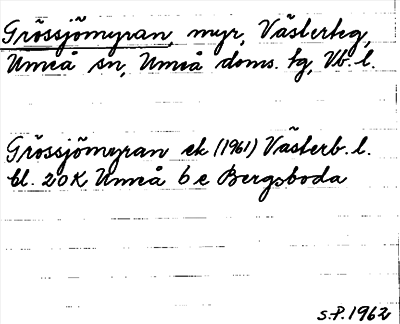 Grössjömyran, myr, Västerteg,
Umeå sn, Umeå doms. tg, Vb. l.
Grössjömyran ek (1961) Västerb. l.
bl. 20 K Umeå 6 e Bergsboda
S.P. 1962